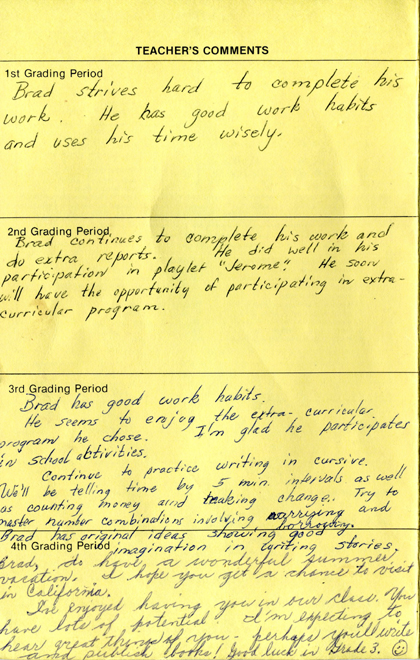 TEACHER'S COMMENTS
1st Grading Period
Brad strives hard to complete his
work. He has good work habits
and uses his time wisely.
2nd Grading Period
Brad continues to complete his work and
do extra reports. He did well in his
participation in playlet "Jerome". He soon
will have the opportunity of participating in extra-
curricular program.
3rd Grading Period
Brad has good work habits.
He seems to enjoy the extra-curricular
program he chose. I'm glad he participates
in school activities.
Continue to practice writing in cursive.
We'll be telling time by 5 min. intervals as well
as counting money and making change. Try to
master number combinations involving carrying and
borrowing.
Brad has original ideas showing good
4th Grading Period
imagination in writing stories.
Brad, do have a wonderful summer
vacation. I hope you get a chance to visit
in California.
I've enjoyed having you in our class. You
have lots of potential. I'm expecting to
hear great things of you - perhaps you'll write
and publish books! Good luck in Grade 3.